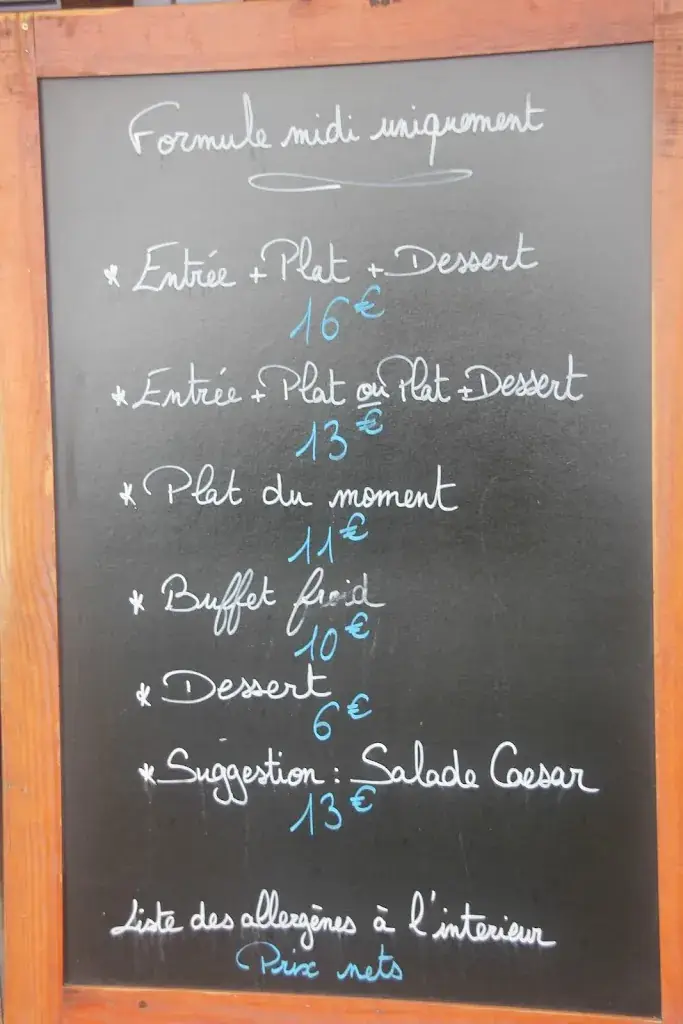 Formule midi uniquement
* Entrée + Plat + Dessert
16€
* Entrée + Plat ou Plat + Dessert
13€
* Plat du moment
11€
* Buffet froid
10€
* Dessert
6€
* Suggestion : Salade Caesar
13€
Liste des allergènes à l'interieur
Prix nets